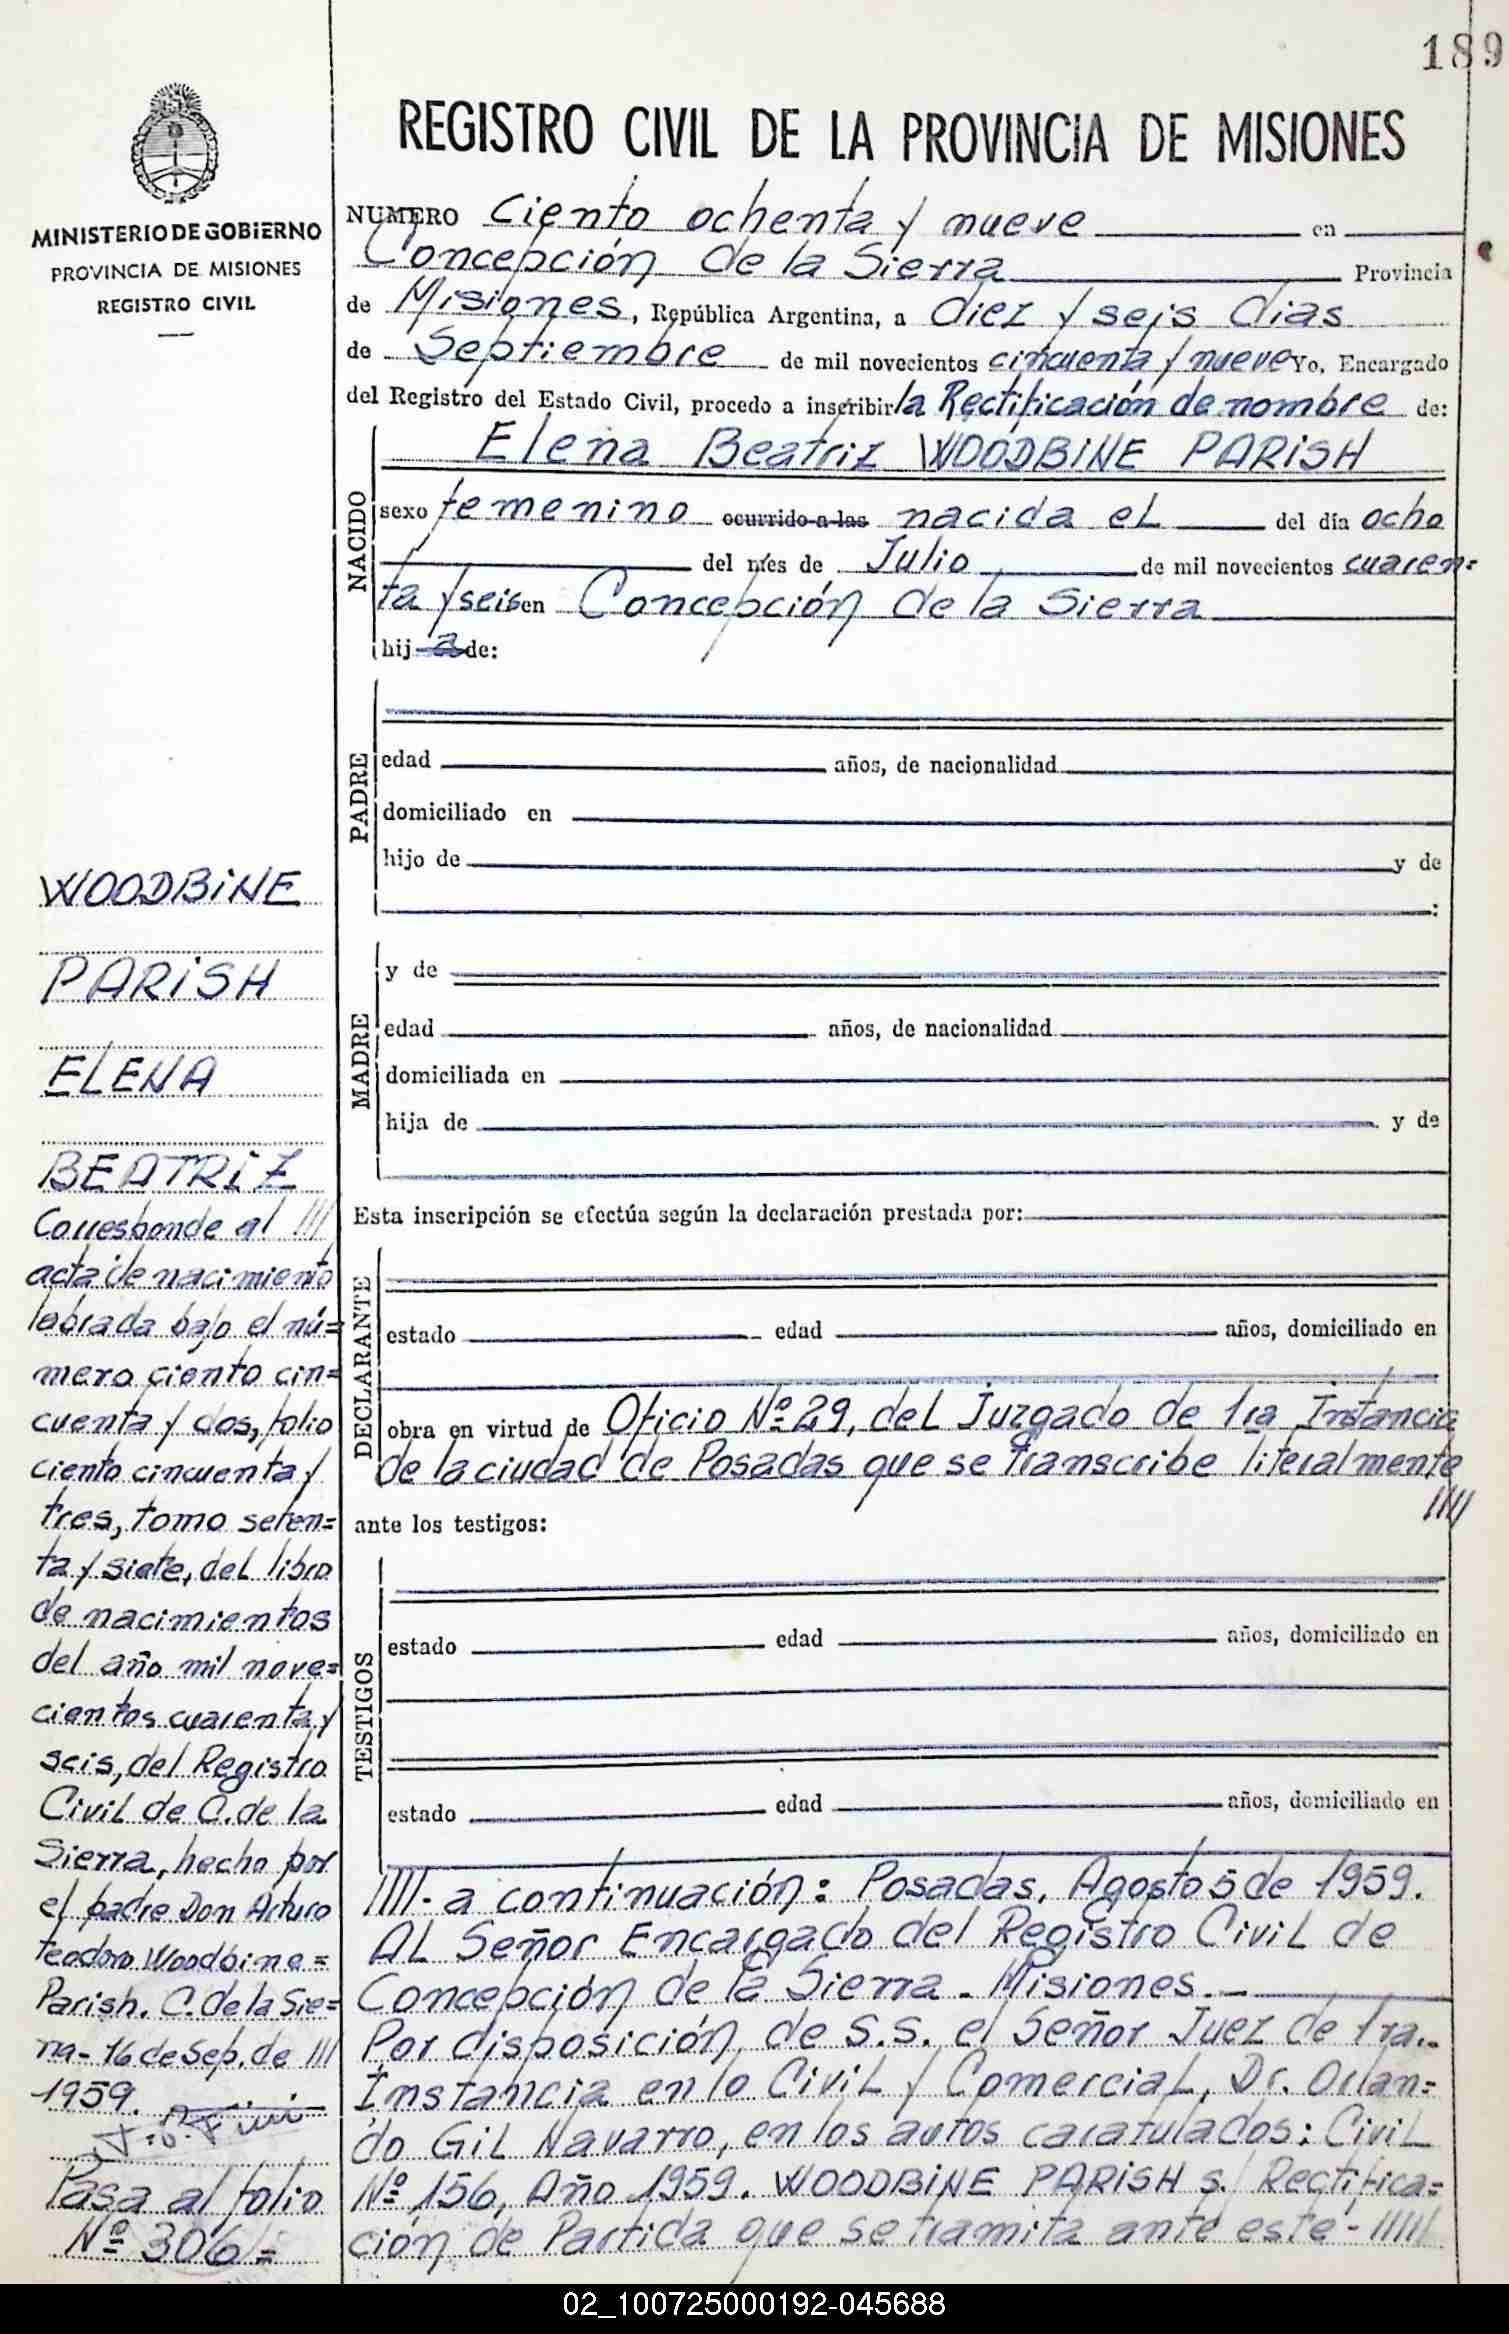 189
REGISTRO CIVIL DE LA PROVINCIA DE MISIONES
MINISTERIO DE GOBIERNO
PROVINCIA DE MISIONES
REGISTRO CIVIL
NUMERO Ciento ochenta y nueve en
Concepción de la Sierra Provincia
de Misiones, República Argentina, a diez y seis dias
de Septiembre de mil novecientos cincuenta y nueve Yo, Encargado
del Registro del Estado Civil, procedo a inscribir la Rectificación de nombre de:
NACIDO
Elena Beatriz WOODBINE PARISH
sexo femenino ocurrido a las nacida el del día ocho
del mes de Julio de mil novecientos cuaren=
ta y seis en Concepción de la Sierra
hij a de:
PADRE
edad años, de nacionalidad
domiciliado en
hijo de y de
:
MADRE
y de
edad años, de nacionalidad
domiciliada en
hija de y de
Esta inscripción se efectúa según la declaración prestada por:
DECLARANTE
estado edad años, domiciliado en
obra en virtud de Oficio Nº 29, del Juzgado de 1ra Instancia
de la ciudad de Posadas que se transcribe literalmente
////
ante los testigos:
TESTIGOS
estado edad años, domiciliado en
estado edad años, domiciliado en
////- a continuación: Posadas, Agosto 5 de 1959.
AL Señor Encargado del Registro Civil de
Concepción de la Sierra - Misiones.-
Por disposición de S.S. el Señor Juez de 1ra.
Instancia en lo Civil y Comercial, Dr. Orlan=
do Gil Navarro, en los autos caratulados: Civil
Nº 156, Año 1959. WOODBINE PARISH s/ Rectifica=
ción de Partida que se tramita ante este - /////
WOODBINE
PARISH
ELENA
BEATRIZ
Corresponde al ///
acta de nacimiento
labrada bajo el nú=
mero ciento cin=
cuenta y dos, folio
ciento cincuenta y
tres, tomo seten=
ta y siete, del libro
de nacimientos
del año mil nove=
cientos cuarenta y
seis, del Registro
Civil de C. de la
Sierra, hecho por
el padre Don Arturo
teodoro Woodbine=
Parish. C. de la Sie=
rra- 16 de Sep. de ///
1959.
Pasa al folio
Nº 306=
02_100725000192-045688